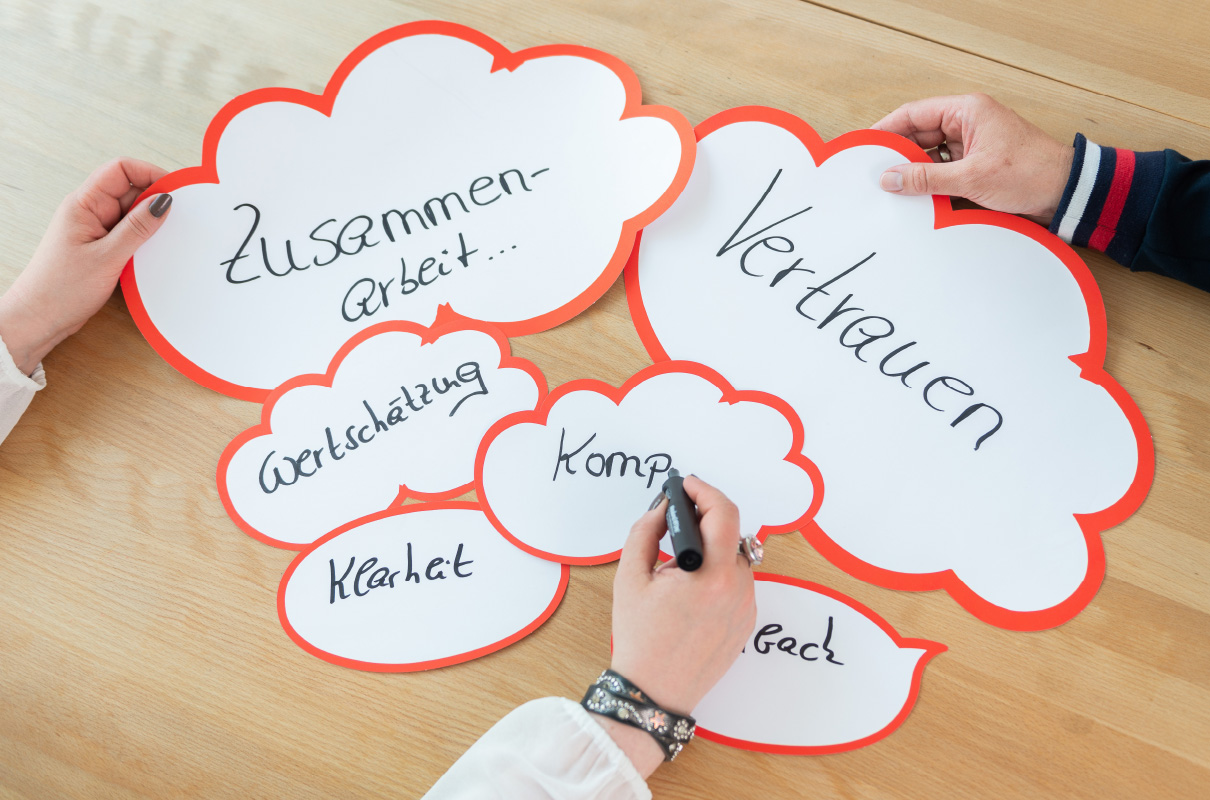 Zusammen-
arbeit...
Vertrauen
Wertschätzung
Komp
Klarheit
back